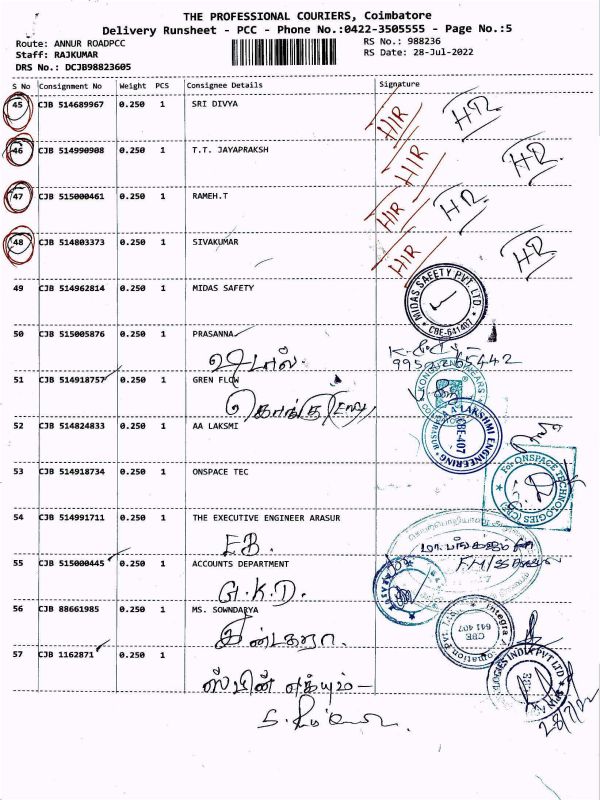 THE PROFESSIONAL COURIERS, Coimbatore
Delivery Runsheet - PCC - Phone No.:0422-3505555 - Page No.:5
Route: ANNUR ROADPCC
RS No.: 988236
Staff: RAJKUMAR
RS Date: 28-Jul-2022
DRS No.: DCJB98823605
S No Consignment No Weight PCS Consignee Details Signature
45 CJB 514689967 0.250 1 SRI DIVYA H/R HR
46 CJB 514990908 0.250 1 T.T. JAYAPRAKSH H/R HR
47 CJB 515000461 0.250 1 RAMEH.T H/R HR
48 CJB 514803373 0.250 1 SIVAKUMAR H/R HR
49 CJB 514962814 0.250 1 MIDAS SAFETY
MIDAS SAFETY PVT. LTD. CBE-641407
50 CJB 515005876 0.250 1 PRASANNA
51 CJB 514918757 0.250 1 GREN FLOW
52 CJB 514824833 0.250 1 AA LAKSMI
LAKSHMI ENGINEERING
53 CJB 514918734 0.250 1 ONSPACE TEC
For ONSPACE TECHNOLOGIES (CBE)
54 CJB 514991711 0.250 1 THE EXECUTIVE ENGINEER ARASUR
E.B.
55 CJB 515000445 0.250 1 ACCOUNTS DEPARTMENT
G.K.D.
56 CJB 88661985 0.250 1 MS. SOWNDARYA
Integra CBE 641 407
57 CJB 1162871 0.250 1
28/7/22